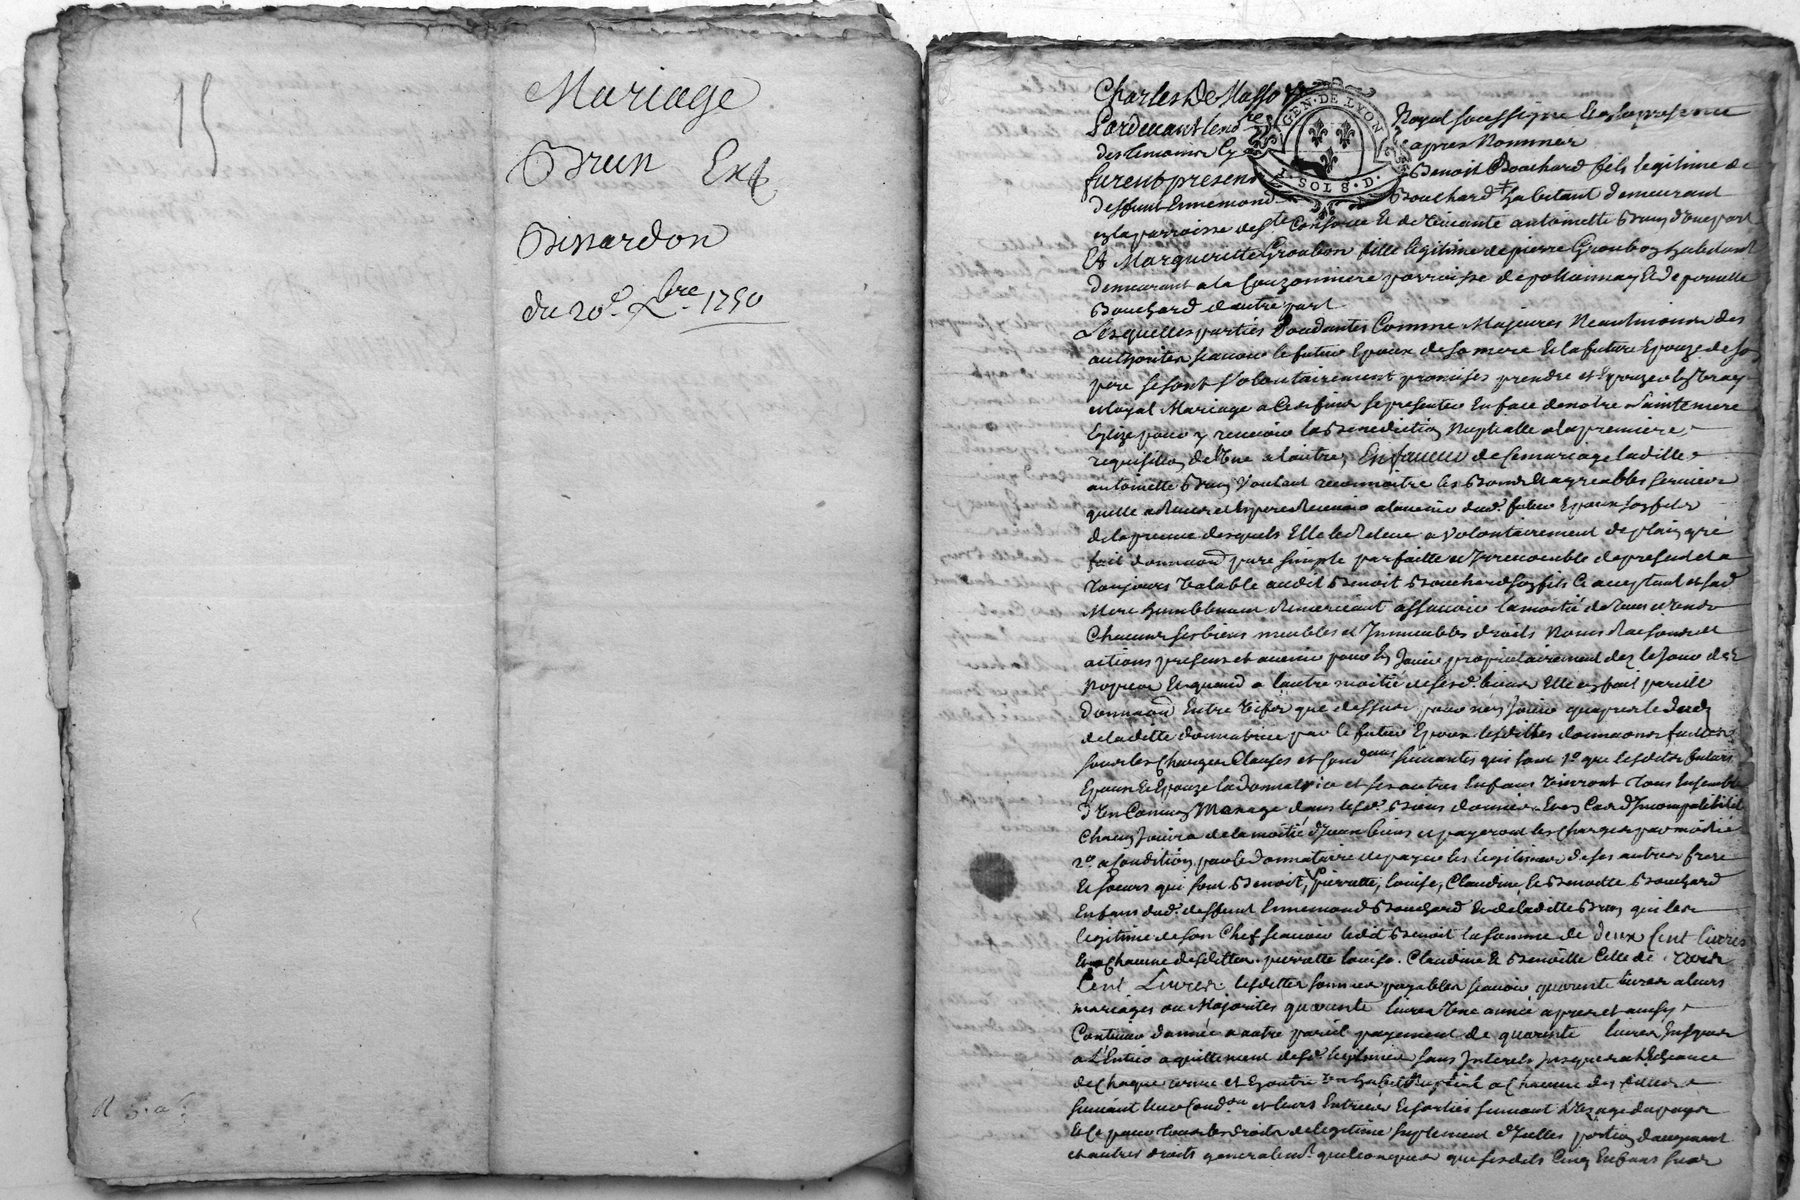 15
Mariage
Brun Ext
Bissardon
du 20e Xbre 1750
Charles De Masso
Pardevant le no.re Royal soussigné et en la presence
des temoins cy apres Nommez
GEN·DE LYON
SOLS·D.
furent presens Benoit Bouchard fils legitime de
deffunt Ennemond Bouchard habitant demeurant
en la parroisse de Ste Consorce et de vivante antoinette Brun d'une part
Et Margueritte Groubon fille legitime de pierre Groubon habitant
demeurant a la Couzonniere parroisse de pollionnay et de pernette
Bouchard d'autre part
Lesquelles parties procedantes Comme Majeures Neantmoins des
authoritéz scavoir le futur Epoux de sa mere et la future Epouze de son
pere se sont Volontairement promises prendre et Epouzer en vray
et loyal Mariage a Ces fins se presenter En face de notre Sainte mere
Eglize pour y recevoir la Benediction Nuptialle a la premiere
requisition de l'une a l'autre, En faveur de Ce mariage laditte
antoinette Brun Voulant reconnoitre les Bons et agreables services
quelle a Receu et Espere Recevoir a lavenir dud. futur Epoux son fils
de la preuve desquels Elle le Releve a Volontairement de plain gre
fait donnaon pure simple parfaitte et Irrevocable de present et a
toujours Valable audit Benoit Bouchard son fils Ce acceptant et sad.
Mere humblement Remerciant assavoir la moitié de tous et uns
Chacuns ses biens meubles et Immeubles droits Noms Raisons et
actions presens et avenir pour En Jouir proprietairement dez le jour des
Nopces Et quand a l'autre moitié de sesd. biens Elle en fait pareille
donnaon Entre vifs que dessus pour n'en Jouir qu'apres le deces
de laditte donnatrice par le futur Epoux lesdittes donnaons faittes
sous les Charges Clauses et Cond.ons suivantes qui sont 1o que lesdits futurs
Epoux et Epouze la Donnatrice et ses autres Enfans Vivront tous Ensemble
d'Un Commun Menage dans lesd. Biens donnés et En Cas d'Incompatibilité
Chacun Jouira de la moitié d'Iceux biens et payeront les Charges par moitié
2o a Condition par le Donnataire de payer les legitimes de ses autres frere
et soeurs qui sont Benoit, pierrette, louise, Claudine, et Benoitte Bouchard
Enfans dud. deffunt Ennemond Bouchard et de laditte Brun qui les
legitime de son Chef scavoir ledit Benoit la somme de deux Cent livres
Et a Chacune desdittes pierrette louise. Claudine et Benoitte Celle de trois
Cent Livres lesdittes sommes payables scavoir quarente livres a leurs
mariages ou Majorités quarente livres Une année apres et ainsy
Continuer d'année a autre pareil payement de quarente livres Jusques
a l'Entier aquittement desd. legitimes sans Interets Jusques a l'Echeance
de Chaque terme et En outre un habit Nuptial a Chacune des filles
suivant leur Cond.on et leurs Entrées et sorties suivant l'Usage du pays
et Ce pour tous les droits de legitime suplement d'Icelles portion d'augment
et autres droits generalem.t quelconques que sesdits Cinq Enfans